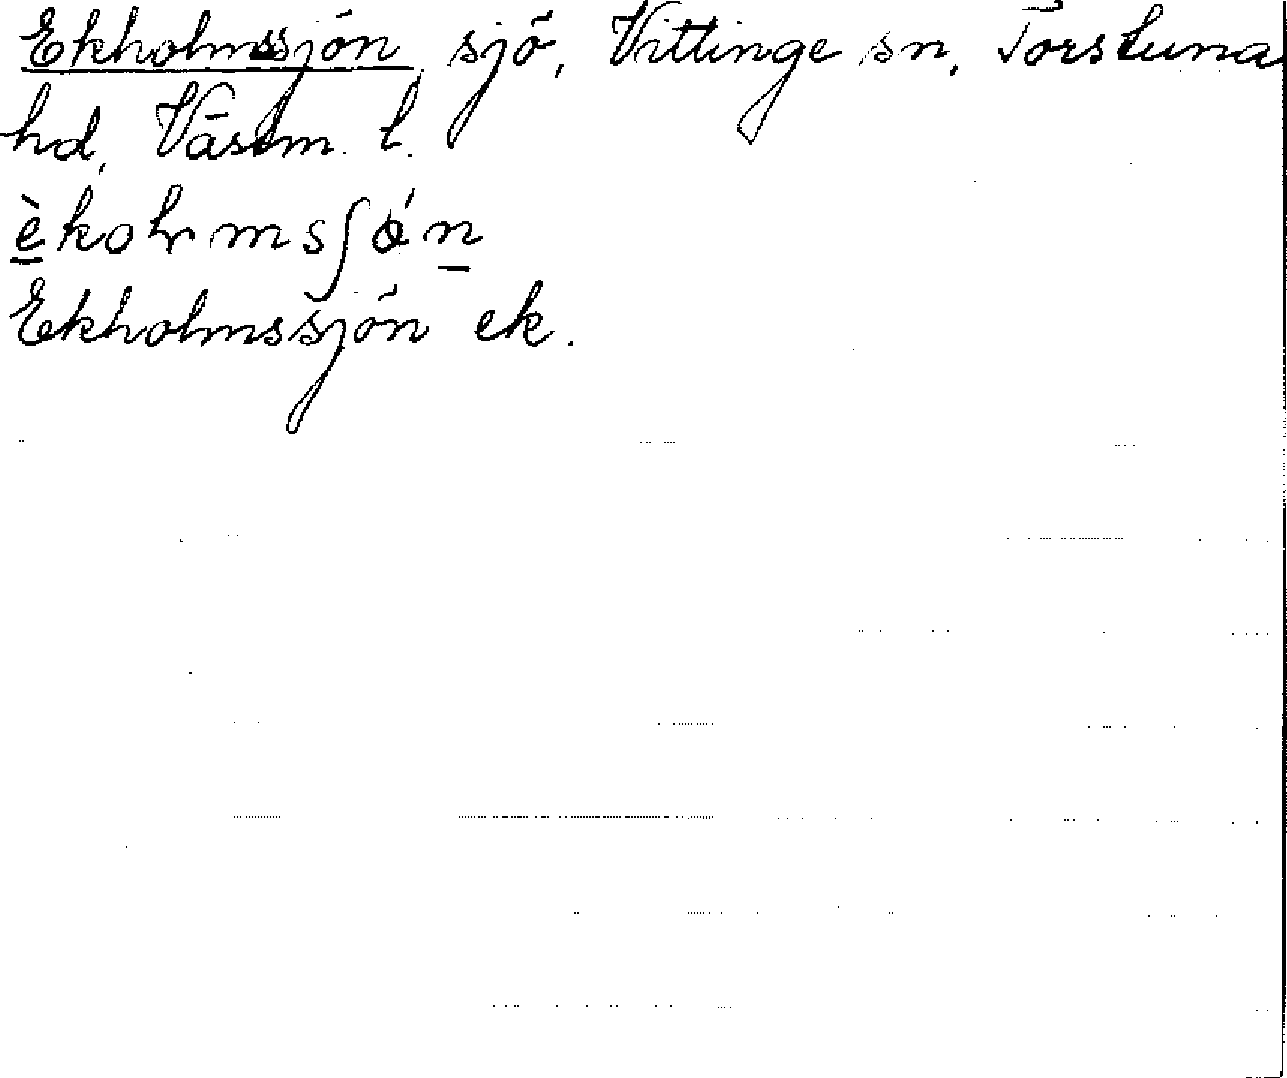 Ekholmssjön sjö, Vittinge sn, Torstuna
hd, Västm. l.
Ekholmssjön ek.